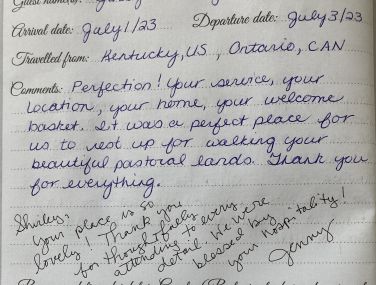 Guest name(s):
Arrival date: July 1/23 Departure date: July 3/23
Travelled from: Kentucky, US, Ontario, CAN
Comments: Perfection! Your service, your
location, your home, your welcome
basket. It was a perfect place for
us to rest up for walking your
beautiful pastoral lands. Thank you
for everything.
Shirley,
Your place is so
lovely! Thank you
for thoughtfully
attending to every
detail. We were
blessed by
your hospitality!
Jenny